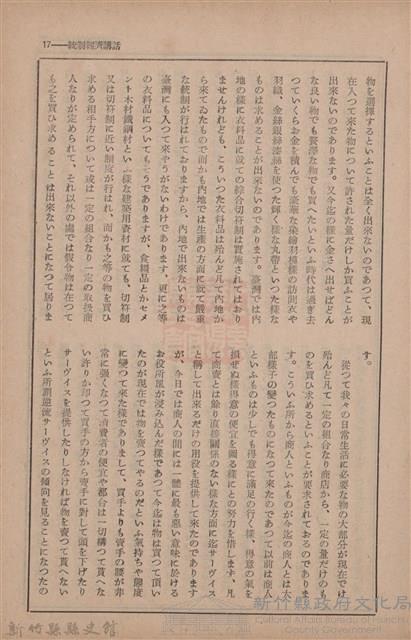 17——統制經濟講話
物を選擇するといふことは全く出來ないのであつて、現
在入つて來た物について許された量だけしか買ふことが
出來ないのであります。又今迄の樣に金さへ出せばどん
な良い物でも贅澤な物でも買へたといふ時代は過ぎ去
つていくらお金を積んでも豪華な染繪羽模樣の訪問衣や
羽織、金絲銀絲漆絲を使つた輝く樣な丸帶といつた樣な
ものは求めることが出來ないのであります。臺灣では内
地の樣に衣料品に就ての綜合切符制は實施されてはおり
ませんけれども、こういつた衣料品は殆んど凡て内地か
ら來てゐたもので而かも内地では生産の方面に於て嚴重
な統制が行はれておりますから、内地で出來ないものは
臺灣にも入つて來やうがないわけであります。更に之等
の衣料品についてもそうでありますが、食糧品とかセメ
ント木材鐵鋼材といふ樣な建築用資材に就ても、切符制
又は切符制に近い制度が行はれ、而かも之等の物を買ひ
求める相手方について或は一定の組合なり一定の取扱商
人なりが定められて、それ以外の處では假令物は在つて
も之を買ひ求めることは出來ないことになつて居りま
す。
從つて我々の日常生活に必要な物の大部分が現在では
殆んど凡て一定の組合なり商店から、一定の量だけのも
のを買ひ求めるといふことが要求されておるのでありま
す。こういふ所から商人といふものが今迄の商人とは大
部樣子の變つたものになつて來たのであつて以前は商人
といふものは少しでも得意に滿足の行く樣、得意の氣を
損せぬ樣得意の便宜を圖る樣にとの努力を惜します、凡
て商賣とは餘り直接關係のない樣な方面に迄サーヴイス
と稱して出來るだけの用役を提供して來たのであります
が、今日では商人の間には一體に最も惡い意味に於ける
お役所風が浸み込んだ樣であつて今迄は物は買つて頂い
たのが現在では物を賣つてやるのだといふ氣持ちや態度
に變つて來た樣でありまして、買手よりも賣手の腰が非
常に強くなつて消費者の便宜や都合は一切構つて貰へな
い許りか却つて買手の方から賣手に對して頭を下げたり
サーヴイスを提供したりしなければ物を賣つて貰へない
といふ所謂逆流サーヴイスの傾向を見ることになつたの
新竹縣縣史館
新竹縣政府文化局
Cultural Affairs Bureau of Hsinchu County